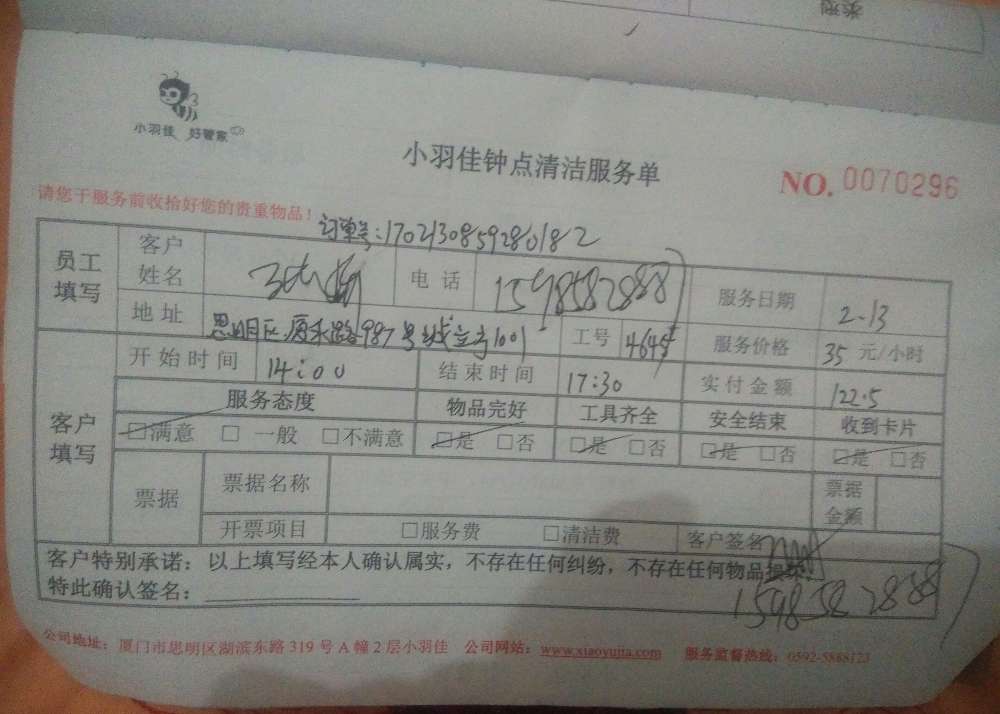 类型
小羽佳 好管家
小羽佳钟点清洁服务单
NO. 0070296
请您于服务前收拾好您的贵重物品!
订单号:1702130859280182
员工填写 客户姓名 电话 1598582888 服务日期 2.13
地址 思明区 987号 1001 工号 4645 服务价格 35 元/小时
开始时间 14:00 结束时间 17:30 实付金额 122.5
客户填写 服务态度 物品完好 工具齐全 安全结束 收到卡片
□满意 □一般 □不满意 □是 □否 □是 □否 □是 □否 □是 □否
票据 票据名称 票据金额
开票项目 □服务费 □清洁费 客户签名
客户特别承诺:以上填写经本人确认属实,不存在任何纠纷,不存在任何物品损坏.
特此确认签名:
1598582888
公司地址:厦门市思明区湖滨东路319号A幢2层小羽佳 公司网站:www.xiaoyujia.com 服务监督热线:0592-5888123